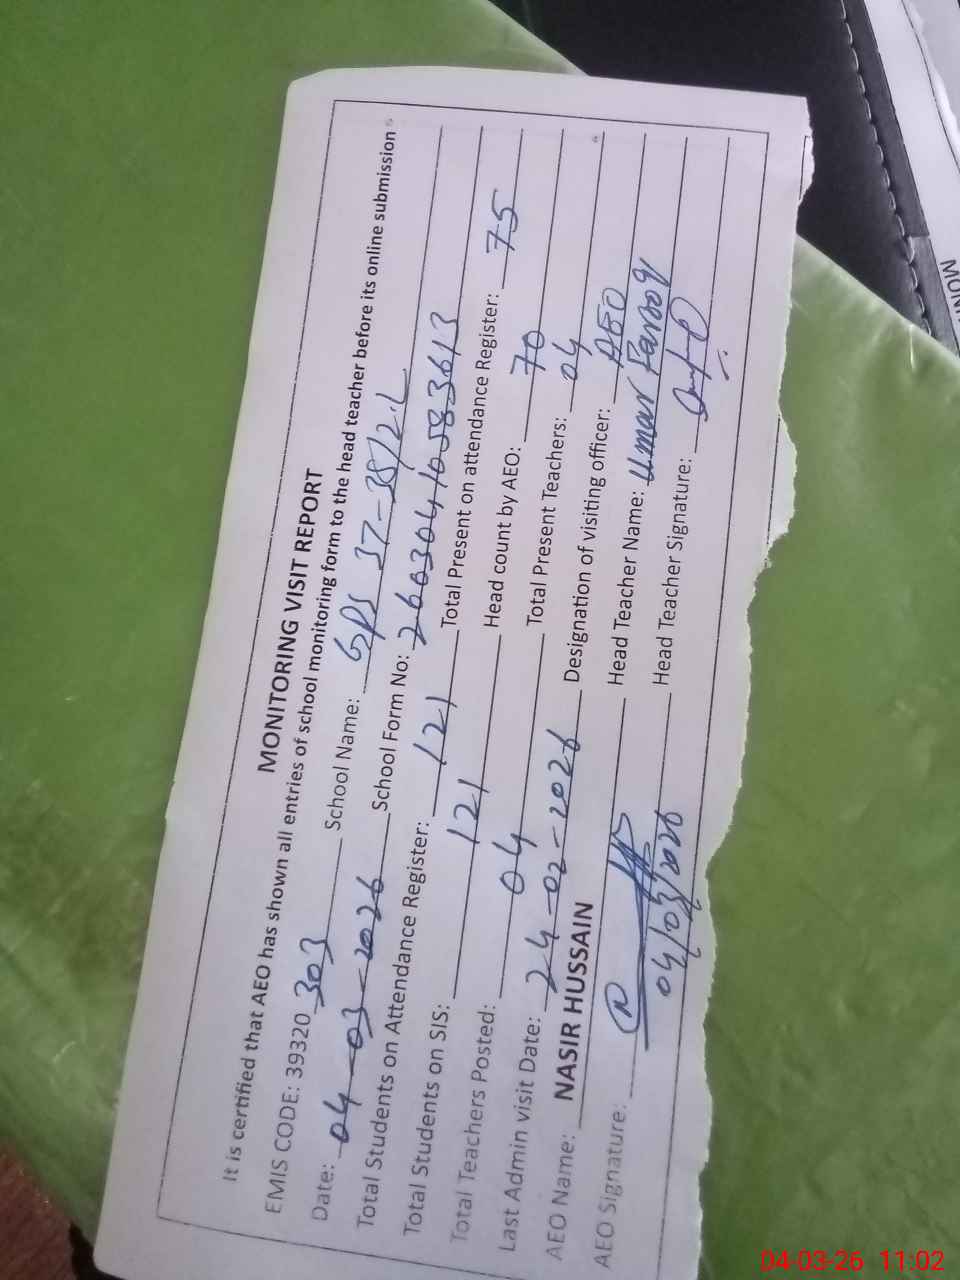 MONITORING VISIT REPORT
It is certified that AEO has shown all entries of school monitoring form to the head teacher before its online submission
EMIS CODE: 39320 303 School Name: GPS 37-38/2.L
Date: 04-03-2026 School Form No: 26030410583613
Total Students on Attendance Register: 121 Total Present on attendance Register: 75
Total Students on SIS: 121 Head count by AEO: 70
Total Teachers Posted: 04 Total Present Teachers: 04
Last Admin visit Date: 24-02-2026 Designation of visiting officer: AEO
AEO Name: NASIR HUSSAIN Head Teacher Name: Umar Farooq
AEO Signature: Head Teacher Signature:
04/03/2026
04-03-26 11:02